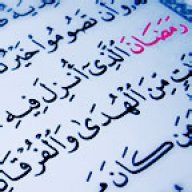 وَأَن تَصُومُوا خَيْرٌ
رَمَضَانَ الَّذِي أُنزِلَ فِيهِ
تٍ مِنَ الْهُدَىٰ وَالْفُرْقَا
كَانَ